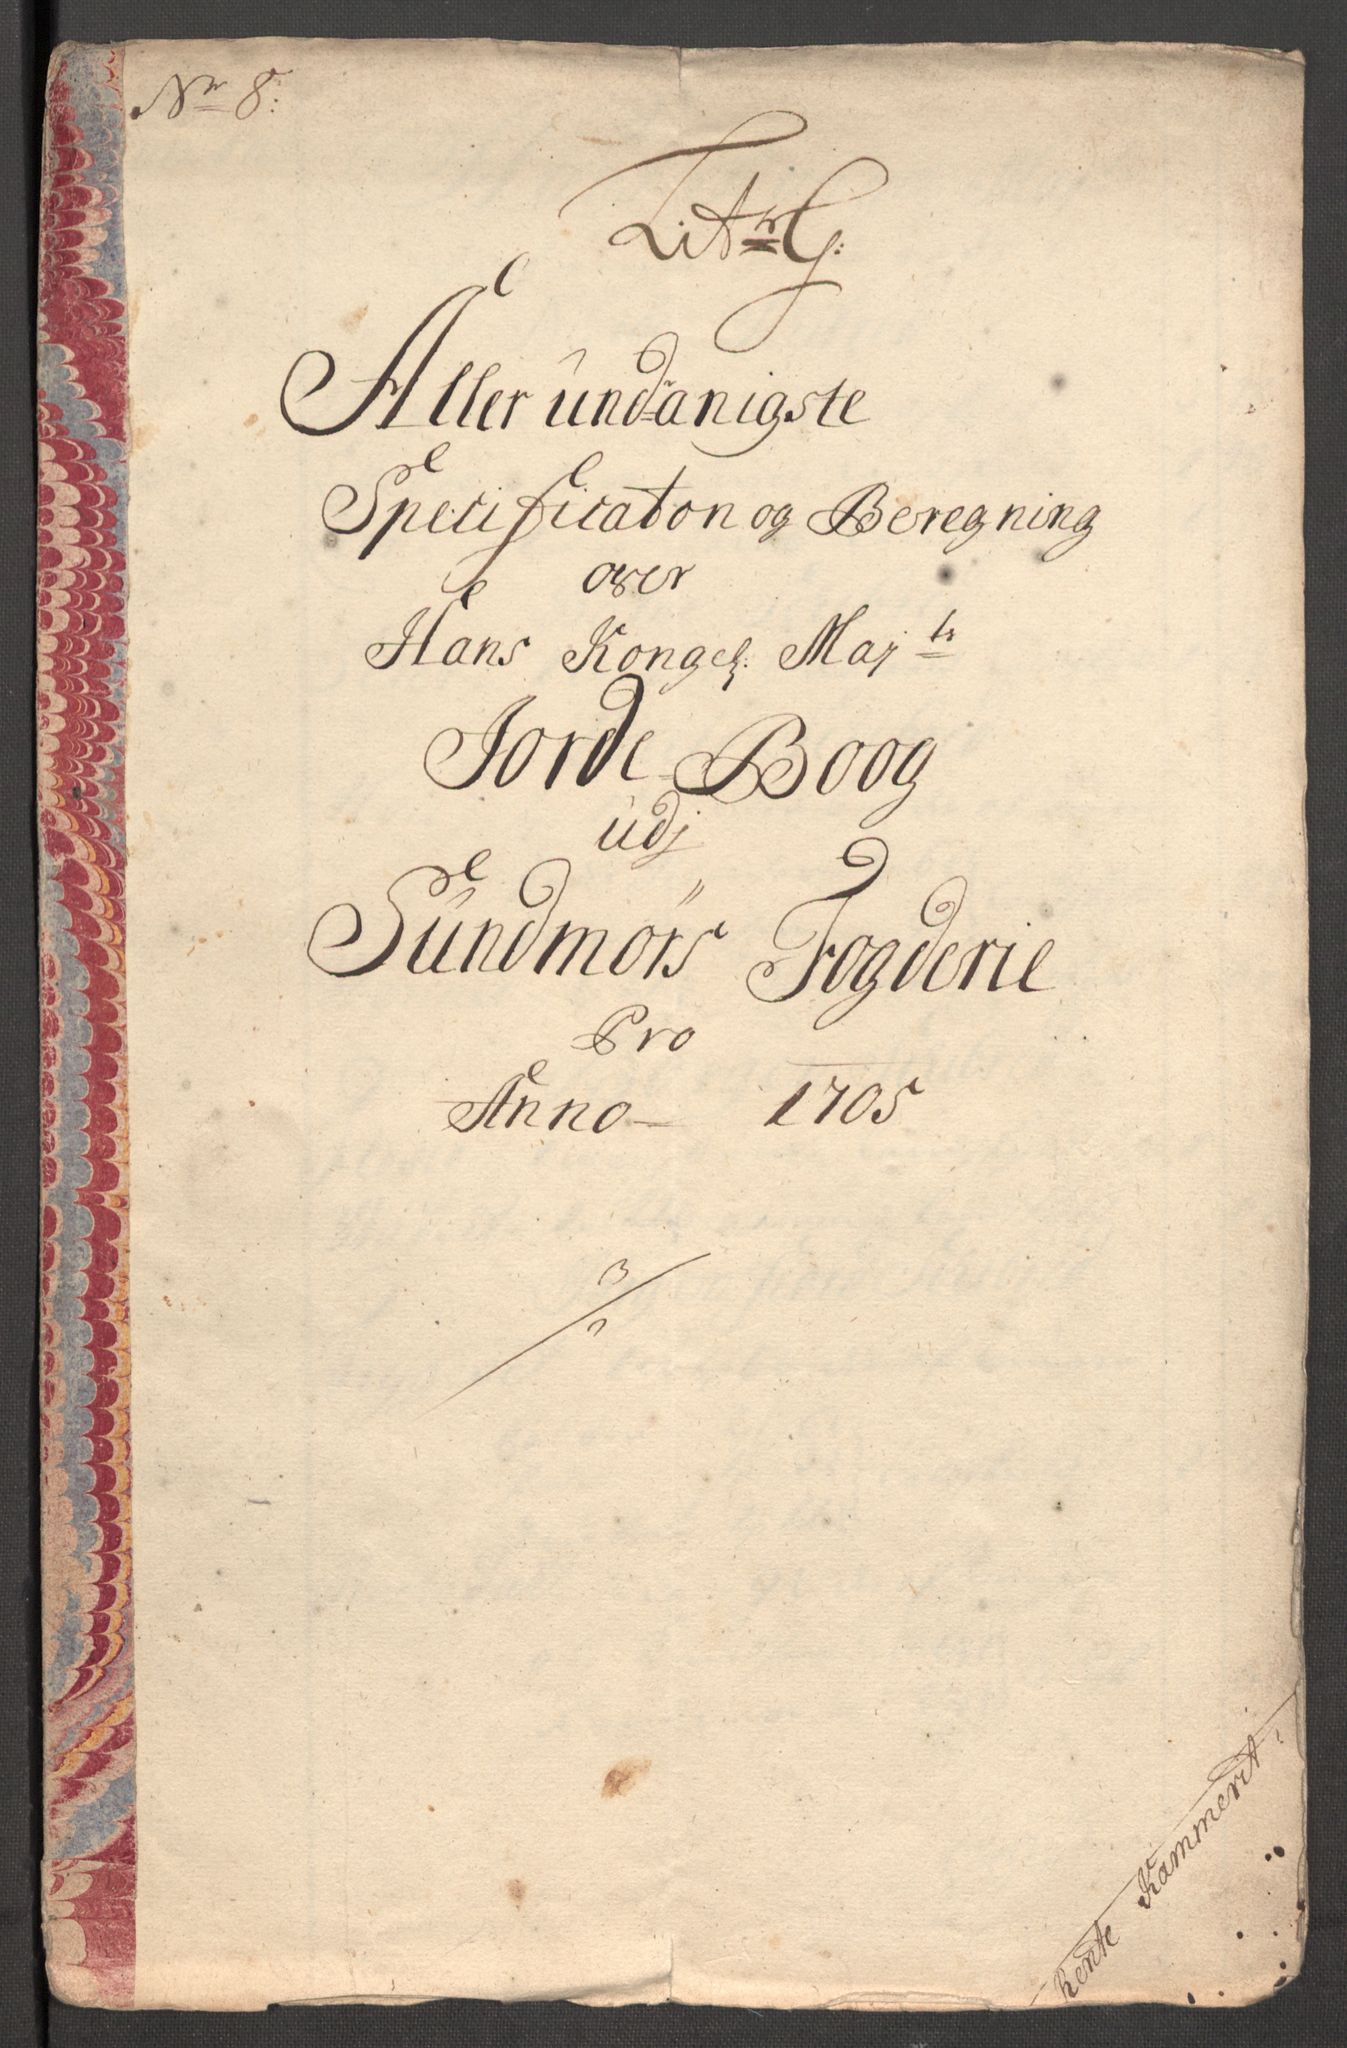 No 8:
Litr G:
Aller undanigste
Specificaton og Beregning
over
Hans Kongel: Majts
Jorde Boog
udj
Sündmørs Fogderie
Pro
Anno 1705
3
Rente Kammerit